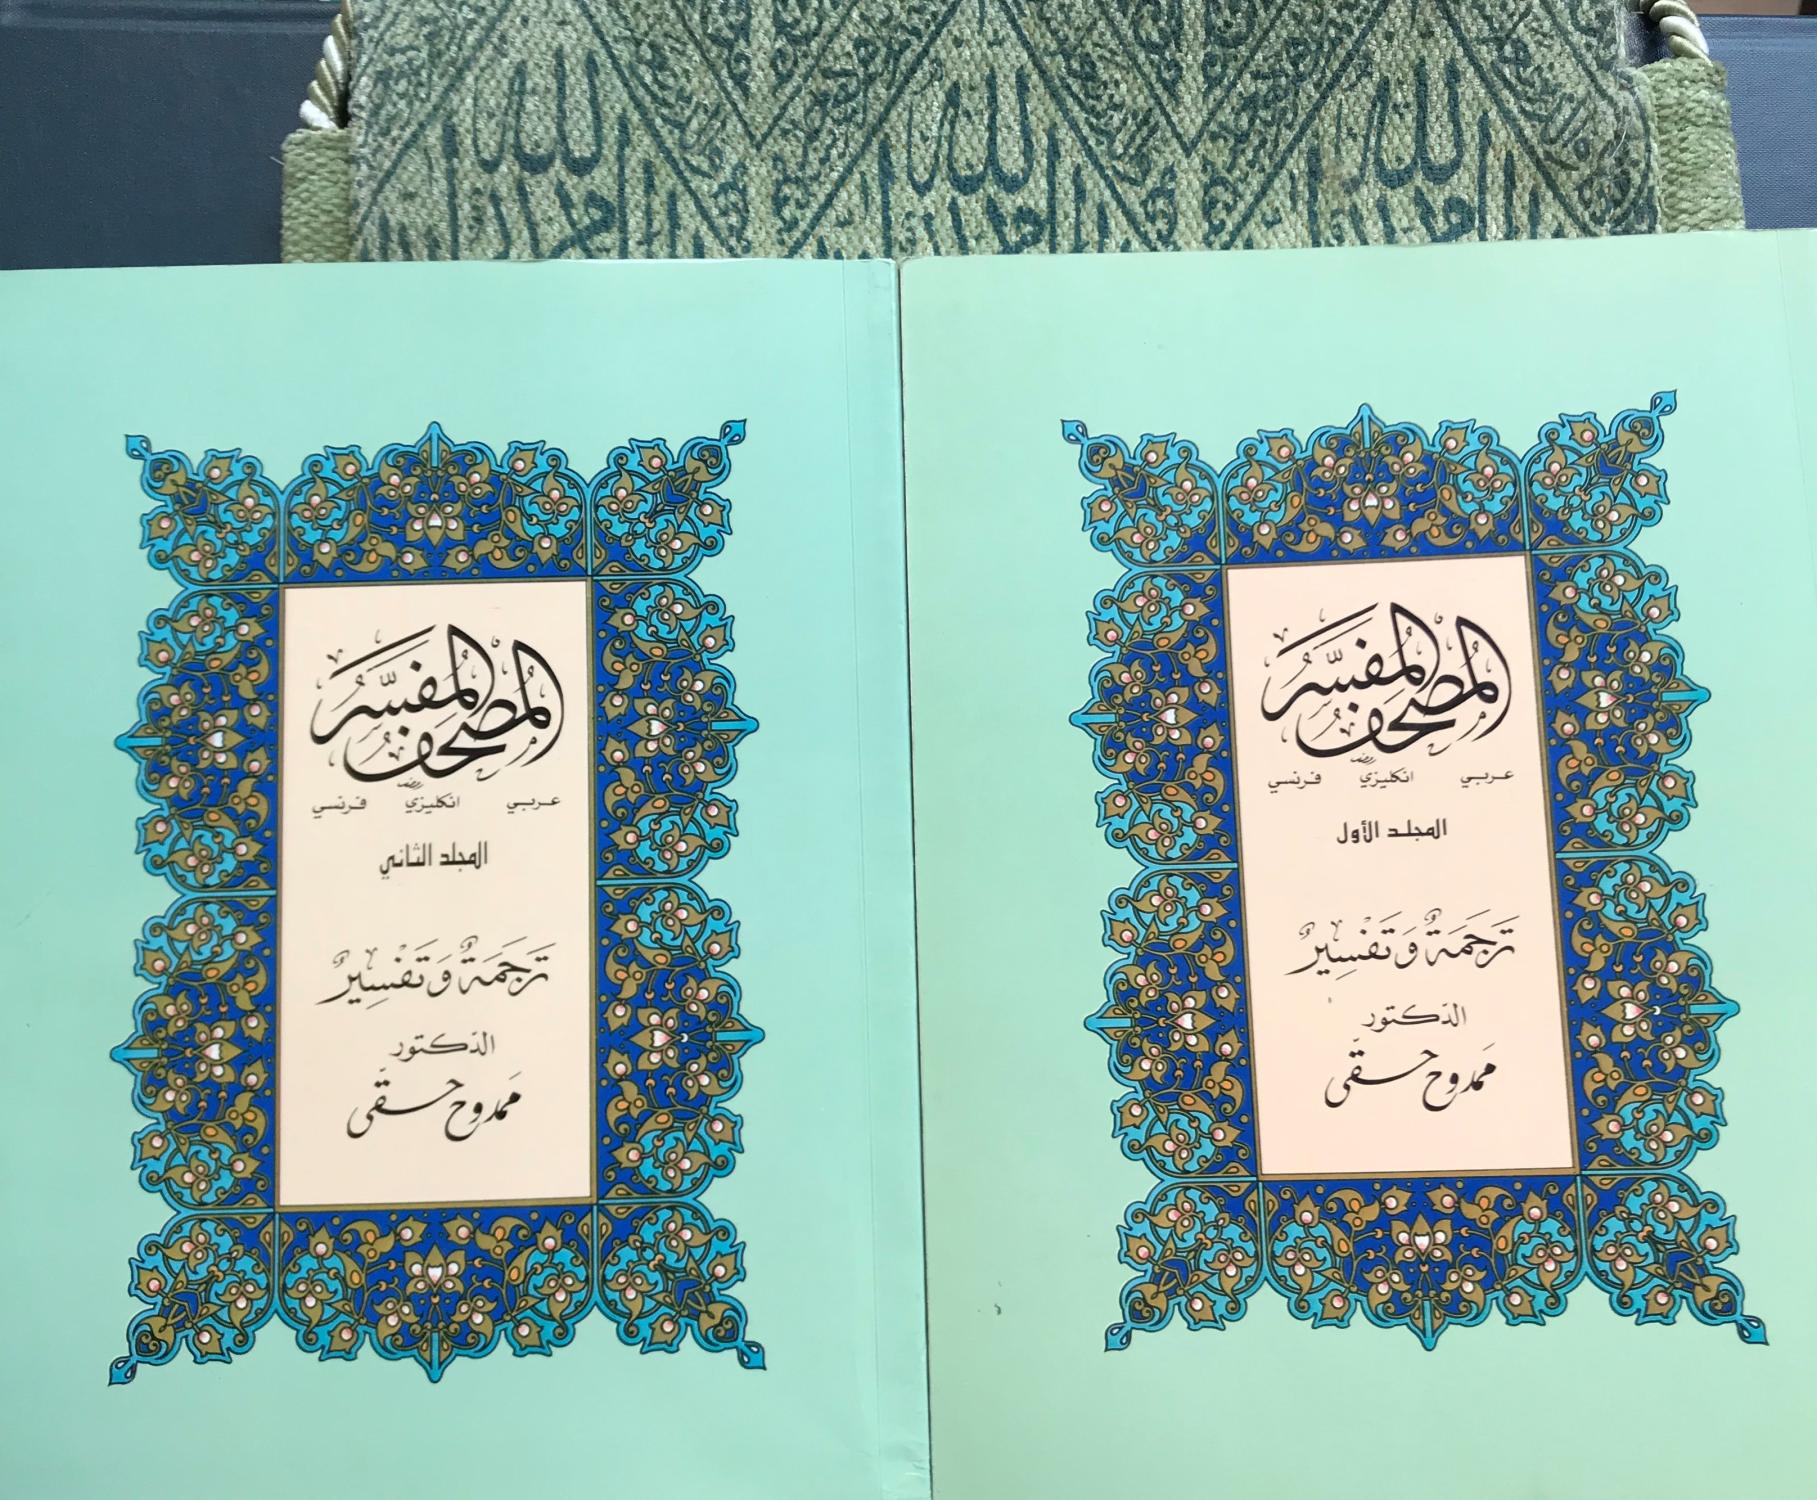 الله الله الله
المصحف المفسر
عربي انكليزي فرنسي
المجلد الأول
ترجمة وتفسير
الدكتور
ممدوح حقي
المصحف المفسر
عربي انكليزي فرنسي
المجلد الثاني
ترجمة وتفسير
الدكتور
ممدوح حقي